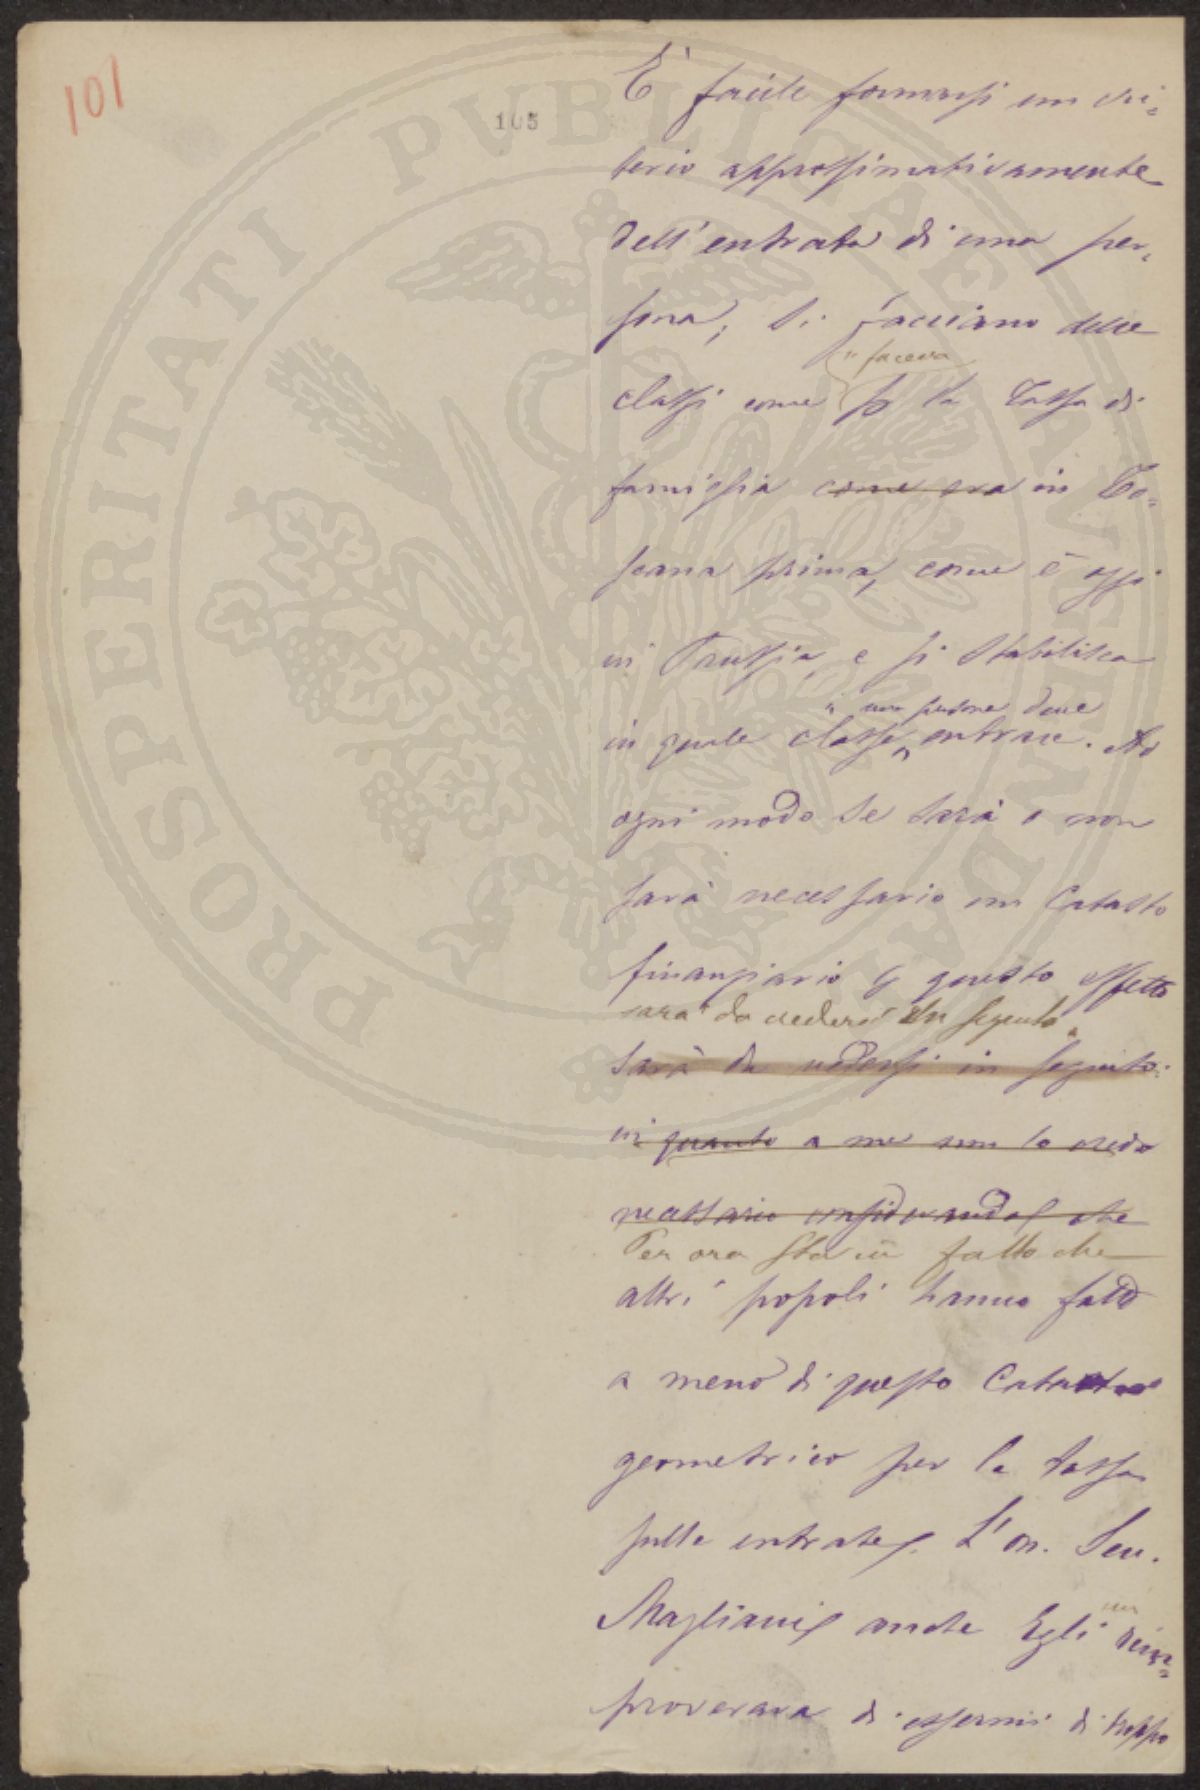 101
105
È facile formarsi un cri=
terio approssimativamente
dell'entrata di una per=
sona, si facciano delle
faceva
classi come la Tassa di
famiglia come era in To=
scana prima, come è oggi
in Prussia, e si stabilisca
una persona deve
in quale classe entrare. Ad
ogni modo se sarà o non
sarà necessario un Catasto
finanziario questo effetto
sarà da vedersi in seguito.
sarà da vedersi in seguito:
in quanto a me non lo credo
necessario considerando che
Per ora sta in fatto che
altri popoli hanno fatto
a meno di questo Catasto
geometrico per la tassa
sulle entrate. L'on. Sen.
mi
Magliani anche Egli rim=
proverava di essermi di troppo
PROSPERITATI PVBLICAE AVGENDAE